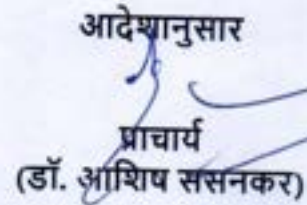 आदेशानुसार
प्राचार्य
(डॉ. आशिष ससनकर)